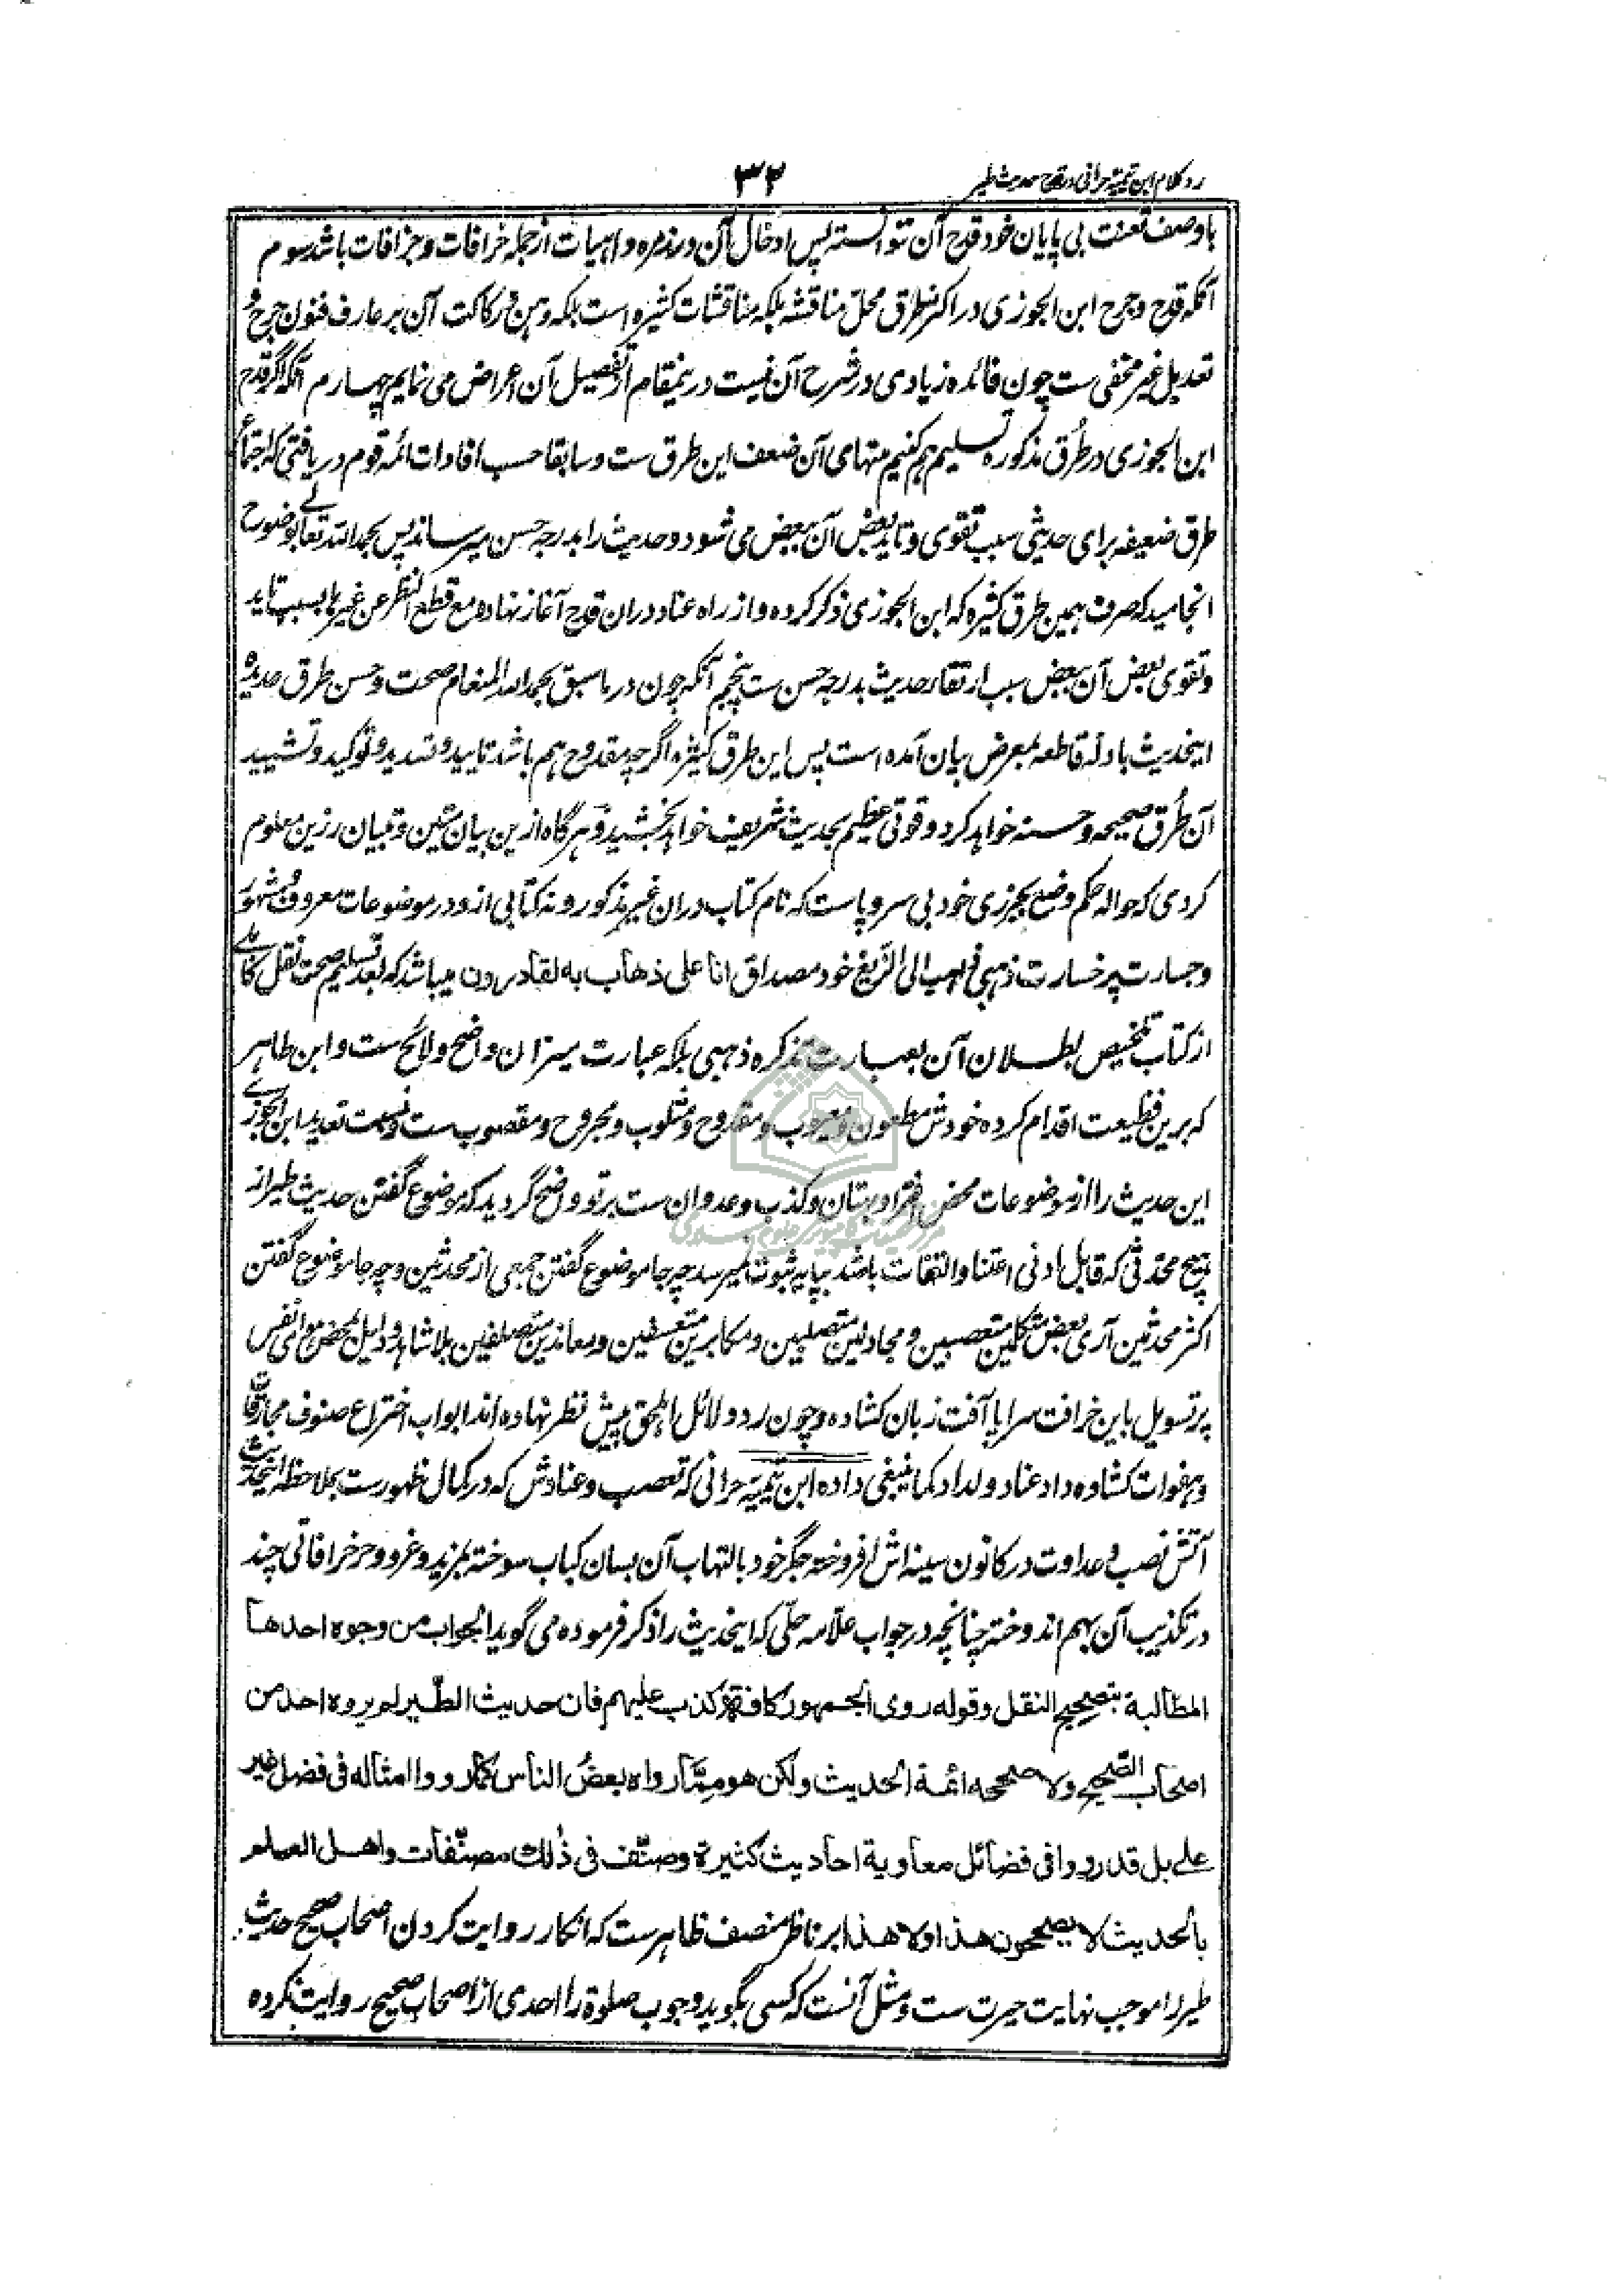 رد کلام ابن تیمیه حرانی در قدح حدیث طیر
۳۲
با وصف تعنت بی پایان خود قدح آن نتوانسته پس ادخال آن در زمره واهیات از جمله خرافات و جزافات باشد سوم
آنکه قدح و جرح ابن الجوزی در اکثر طرق محل مناقشه بلکه مناقشات کثیره است بلکه وهن و رکاکت آن بر عارف فنون جرح و
تعدیل غیر مخفی ست چون فائده زیادی در شرح آن نیست درینمقام از تفصیل آن اعراض می نمایم چهارم آنکه اگر قدح
ابن الجوزی در طرق مذکوره تسلیم هم کنیم منتهای آن ضعف این طرق ست و سابقا حسب افادات ائمه قوم دریافتی که اجتماع
طرق ضعیفه برای حدیثی سبب تقوی و تاید بعض آن ببعض می شود و حدیث را بدرجه حسن میرساند پس بحمد الله تعالی بوضوح
انجامید که صرف همین طرق کثیره که ابن الجوزی ذکر کرده و از راه عناد دران قدح آغاز نهاده مع قطع النظر عن غیرها بسبب تاید
و تقوی بعض آن ببعض سبب ارتقاء حدیث بدرجه حسن ست پنجم آنکه چون در ما سبق بحمد الله المنعام صحت و حسن طرق عدیده
اینحدیث بادله قاطعه بمعرض بیان آمده است پس این طرق کثیره اگرچه مقدوح هم باشد تایید و تسدید و توکید و تشیید
آن طرق صحیحه و حسنه خواهد کرد و قوتی عظیم بحدیث شریف خواهد بخشید و هر گاه ازین بیان متین و تبیان رزین معلوم
کردی که حواله حکم وضع بجزری خود بی سر و پاست که نام کتاب دران غیر مذکور و نه کتابی ازو در موضوعات معروف و مشهور
و جسارت پر خسارت ذهبی ذاهب الی الزیغ خود مصداق انا علی ذهاب به لقادرون میباشد که بعد تسلیم صحت نقل کابلی
از کتاب تلخیص بطلان آن بعبارت تذکره ذهبی بلکه عبارت میزان واضح و لائح ست و ابن طاهر
که برین فظیعت اقدام کرده خودش مطعون و معیوب و مقدوح و مثلوب و مجروح و مقصوب ست و نسبت تعدید ابن الجوزی
این حدیث را از موضوعات محض افترا و بهتان و کذب و عدوان ست بر تو واضح گردید که موضوع گفتن حدیث طیر از
هیچ محدثی که قابل ادنی اعتنا و التفات باشد بپایه ثبوت نمیرسد چه جا موضوع گفتن جمعی از محدثین و چه جا موضوع گفتن
اکثر محدثین آری بعض متکلمین متعصبین و مجادلین متصلبین و مکابرین متعسفین و معاندین متصلفین بلا شاهد و دلیل بمحض هوای نفس
پر تسویل باین خرافت سراپا آفت زبان کشاده و چون رد دلائل اهل حق پیش نظر نهاده اند ابواب اختراع صنوف مجازفات
و هفوات کشاده داد عناد و لداد کما ینبغی داده ابن تیمیه حرانی که تعصب و عنادش که در کمال ظهورست بملاحظه اینحدیث
آتش نصب و عداوت در کانون سینه اش افروخته جگر خود بالتهاب آن بسان کباب سوخته بمزید و غرو حرخرافاتی چند
در تکذیب آن بهم اندوخته چنانچه در جواب علامه حلی که اینحدیث را ذکر فرموده می گوید الجواب من وجوه احدها
المطالبة بتصحیح النقل و قوله روی الجمهور کافة کذب علیهم فان حدیث الطیر لم یروه احد من
اصحاب الصحیح ولا صححه ائمة الحدیث ولکن هو مما رواه بعض الناس کما رووا امثاله فی فضل غیر
علی بل قد رووا فی فضائل معاویة احادیث کثیرة وصنف فی ذلک مصنفات واهل العلم
بالحدیث لا یصححون هذا ولا هذا بر ناظر منصف ظاهرست که انکار روایت کردن اصحاب صحیح حدیث
طیر را موجب نهایت حیرت ست و مثل آنست که کسی بگوید وجوب صلوة را احدی از اصحاب صحیح روایت نکرده